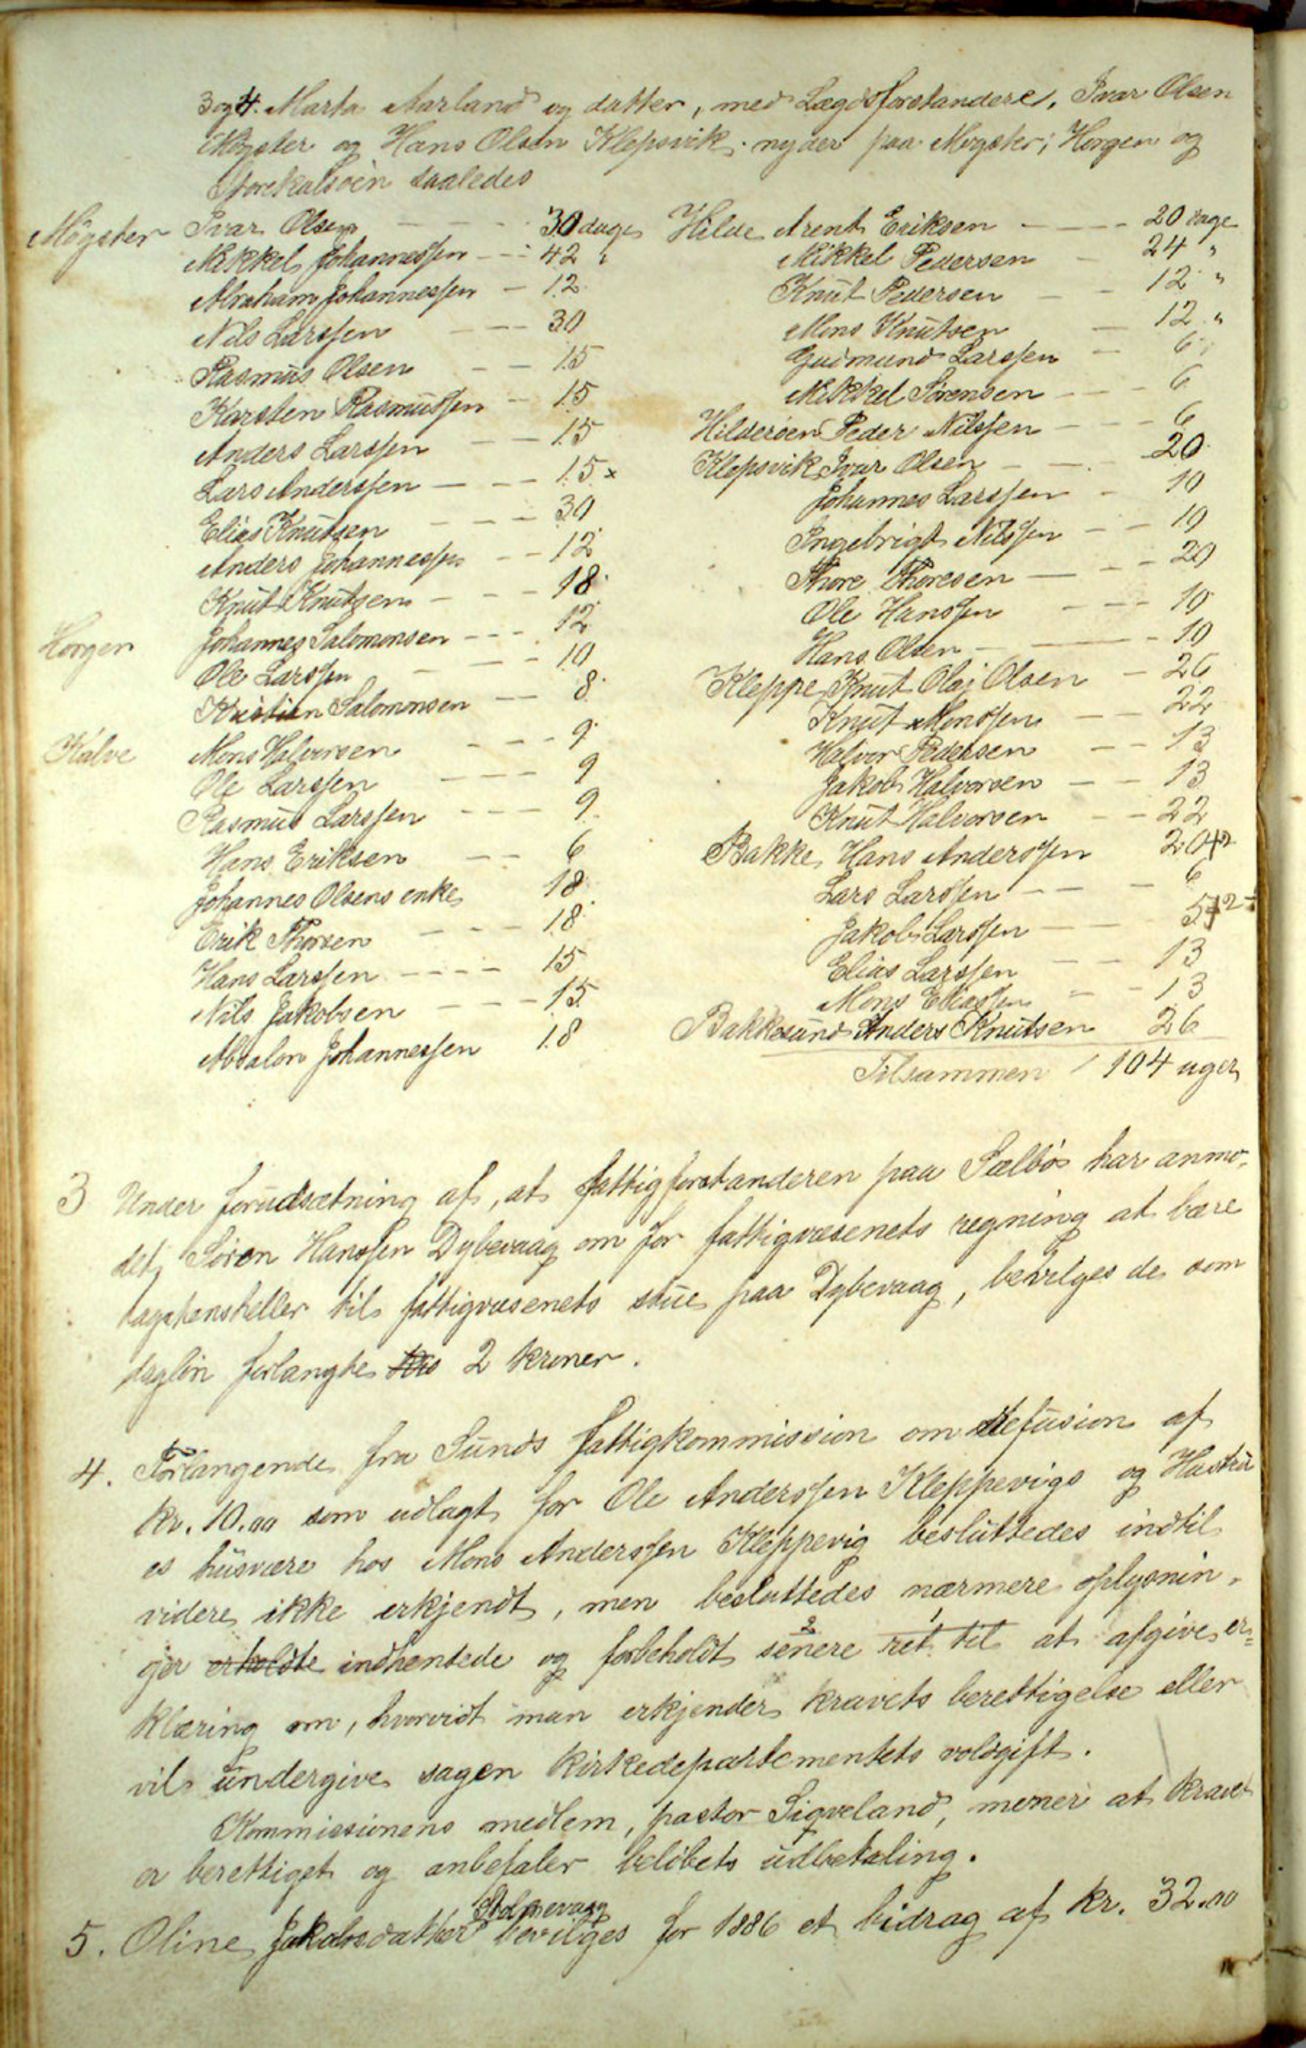 3 og 4. Marta Aarland og datter, med Lægdsforstandere, Ivar Olsen
Møgster og Hans Olsen Klepsvik nyder paa Møgster; Horgen og
Storekalsøen saaledes
Møgster Ivar Olsen - - 30 dage
Mikkel Johannessen - - 42 "
Abraham Johannessen - 12
Nils Larssen - - - 30
Rasmus Olsen - - 15
Karsten Rasmussen - 15
Anders Larssen - - 15
Lars Anderssen - - - 15 x
Elias Knutsen - - - 30
Anders Johannessen - - 12
Knut Knutsen - - - 18
Horgen Johannes Salomonsen - - - 12
Ole Larssen - - 10
Kristian Salomonsen - - 8
Kalve Mons Halvorsen - - - 9
Ole Larssen - - - 9
Rasmus Larssen - - - 9
Hans Eriksen - - 6
Johannes Olsens enke 18
Erik Thorsen - - - 18
Hans Larssen - - - - 15
Nils Jakobsen - - - 15
Absalon Johannessen 18
Hilde Arent Eriksen - - - - 20 dage
Mikkel Pedersen - 24 "
Knut Pedersen - - 12 "
Mons Knutsen - 12 "
Gudmund Larssen - 6
Mikkel Sørensen - - 6
Hilderøen Peder Nilssen - - - 6
Klepsvik Ivar Olsen - - 20
Johannes Larssen - 10
Ingebrigt Nilssen - - 10
Thore Thoresen - - - 20
Ole Hanssen - - - 10
Hans Olsen - - - 10
Kleppe Knut Olaj Olsen - 26
Knut Monssen - - 22
Halvor Pedersen - - 13
Jakob Halvorsen - - 13
Knut Halvorsen - - 22
Bakke Hans Anderssen 20 42
Lars Larssen - - - 6
Jakob Larssen - - 5 12
Elias Larssen - - 13
Mons Eliassen - - 13
Bakkesund Anders Knutsen 26
Tilsammen / 104 uger
3 Under forudsætning af, at fattigforstanderen paa Sælbø har anmo-
det Søren Hanssen Dybevaag om for fattigvæsenets regning at bære
tagstensheller til fattigvæsenets stue paa Dybevaag, bevilges de som
dagløn forlangte 2 kroner.
4. Forlangende fra Sunds fattigkommission om Refusion af
kr. 10.00 som udlagt for Ole Anderssen Kleppevigs og Hustru
es husvære hos Mons Anderssen Kleppevig besluttedes indtil
videre ikke erkjendt, men besluttedes nærmere oplysnin-
ger erholdte indhentede og forbeholdt senere ret til at afgive er=
klæring om, hvorvidt man erkjender kravets berettigelse eller
vil undergive sagen kirkedepartementets voldgift.
Kommissionens medlem, pastor Sigveland, mener at kravet
er berettiget og anbefaler beløbets udbetaling.
Stolmevaag
5. Oline Jakobsdatter bevilges for 1886 et bidrag af kr. 32.00